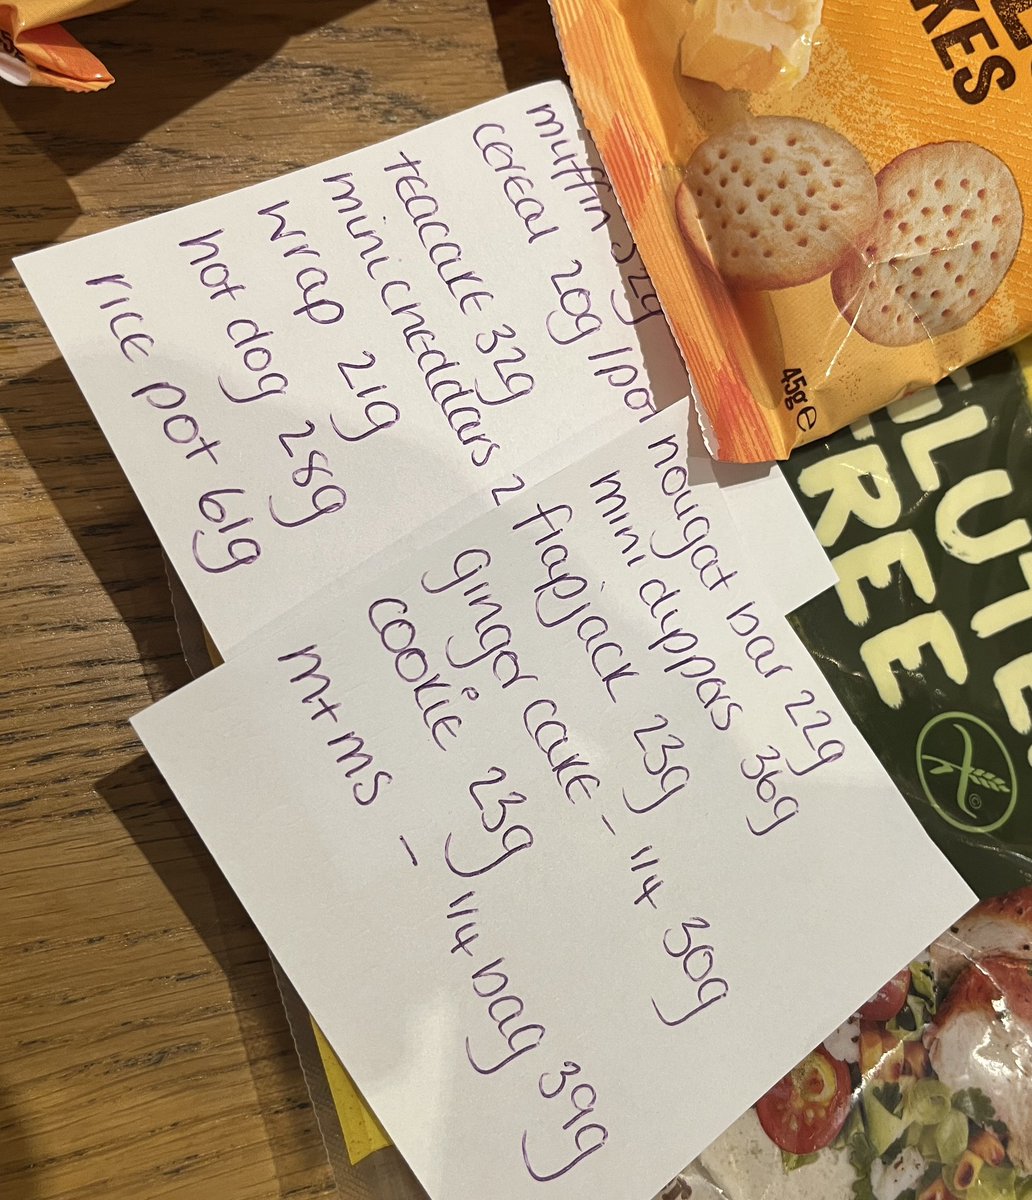 muffin 32g
cereal 20g /pot
teacake 32g
mini cheddars 2
wrap 21g
hot dog 28g
rice pot 61g
nougat bar 22g
mini dippers 36g
flapjack 23g
ginger cake - 1/4 30g
cookie 23g
m+ms - 1/4 bag 39g
KES
45g e
FREE